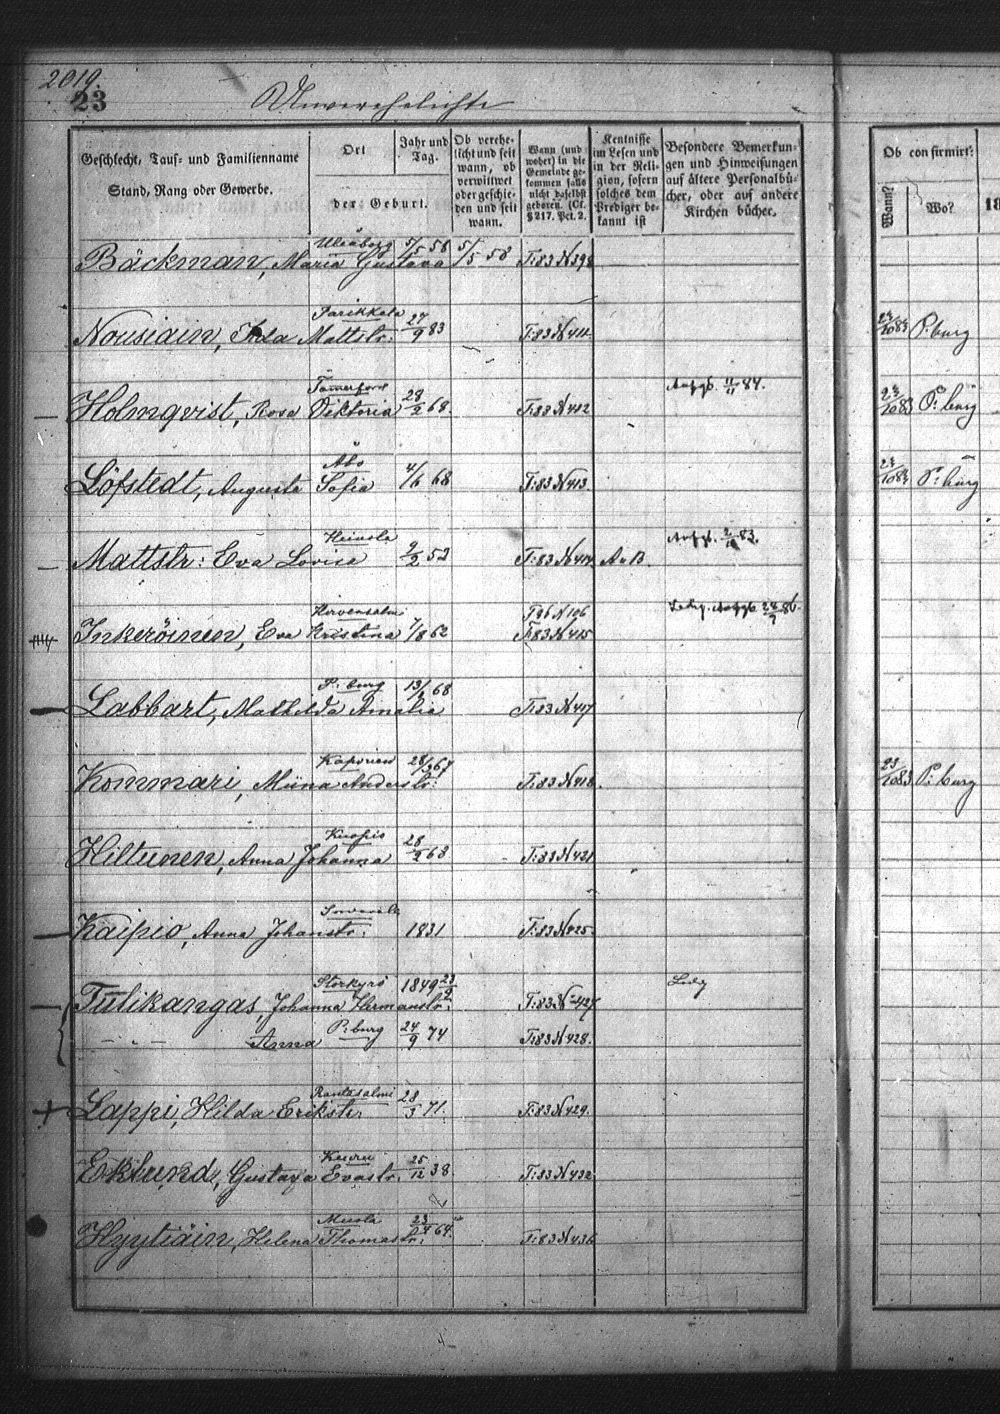 2019.
23
Unverehelichte
Geschlecht, Tauf- und Familienname
Stand, Rang oder Gewerbe.
Ort
Jahr und Tag.
der Geburt.
Ob verehe-
licht und seit
wann, ob
verwittwet
oder geschie-
den und seit
wann.
Wann (und
woher) in die
Gemeinde ge-
kommen falls
nicht daselbst
geboren. (Cf.
§ 217. Pct. 2.
Kentnisse
im Lesen und
in der Reli-
gion, sofern
solches dem
Prediger be-
kannt ist
Besondere Bemerkun-
gen und Hinweisungen
auf ältere Personalbü-
cher, oder auf andere
Kirchen bücher.
Ob confirmirt:
Wann?
Wo?
18
Uleåborg 4/5 58 5/5 58
Bäckman, Maria Gustava T:83 N 398
Parikkala 27/9 83
Nousiain, Ida Mattstr: T:83 N 411 23/10 83 P:burg
Tamerfors Aufgb. 11/11 84.
Holmqvist, Rosa Viktoria 28/2 68. T:83 N 412 23/10 83 P:burg
Åbo
Löfstedt, Augusta Sofia 4/6 68 T:83 N 413. 23/10 83 P:burg
Heinola
Mattstr: Eva Lovisa 9/2 53 T:83 N 414 A.B.
Hirvensalmi T96 N 106 Ledig. Aufgb 24/7 86.
Inkeröinen, Eva Kristina 7/8 62 T:83 N 415
P:burg 13/2 68
Labbart, Mathilda Amalia T:83 N 417
Kaporien 28/3 67
Kommari, Miina Anderstr: T:83 N 418. 23/10 83 P:burg
Kuopio
Hiltunen, Anna Johanna 28/2 68 T:83 N 421
Kaipio, Anna Johanstr: 1831 T:83 N 425.
Storkyrö 1849 23/9 Ledig
Tulikangas, Johanna Hermanstr: T:83 N 427
- " - Anna P:burg 24/9 74 T:83 N 428.
Rantasalmi
Lappi, Hilda Erikstr 28/3 71. T:83 N 429.
Keuru
Eklund, Gustava Evastr. 25/12 38 T:83 N 432
Muola
Hyytiäin, Helena Thomastr. 23/4 64. T:83 N 436